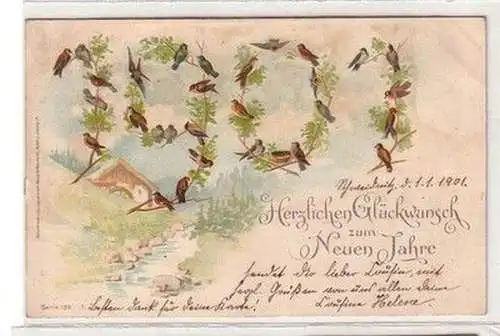 1901
Schweidnitz, d. 1.1.1901.
Herzlichen Glückwunsch
zum
Neuen Jahre
sendet Dir lieber Cousin, mit
herzl. Grüßen von uns allen Deine
Cousine Helene
Besten Dank für Deine Karte!
Serie 139